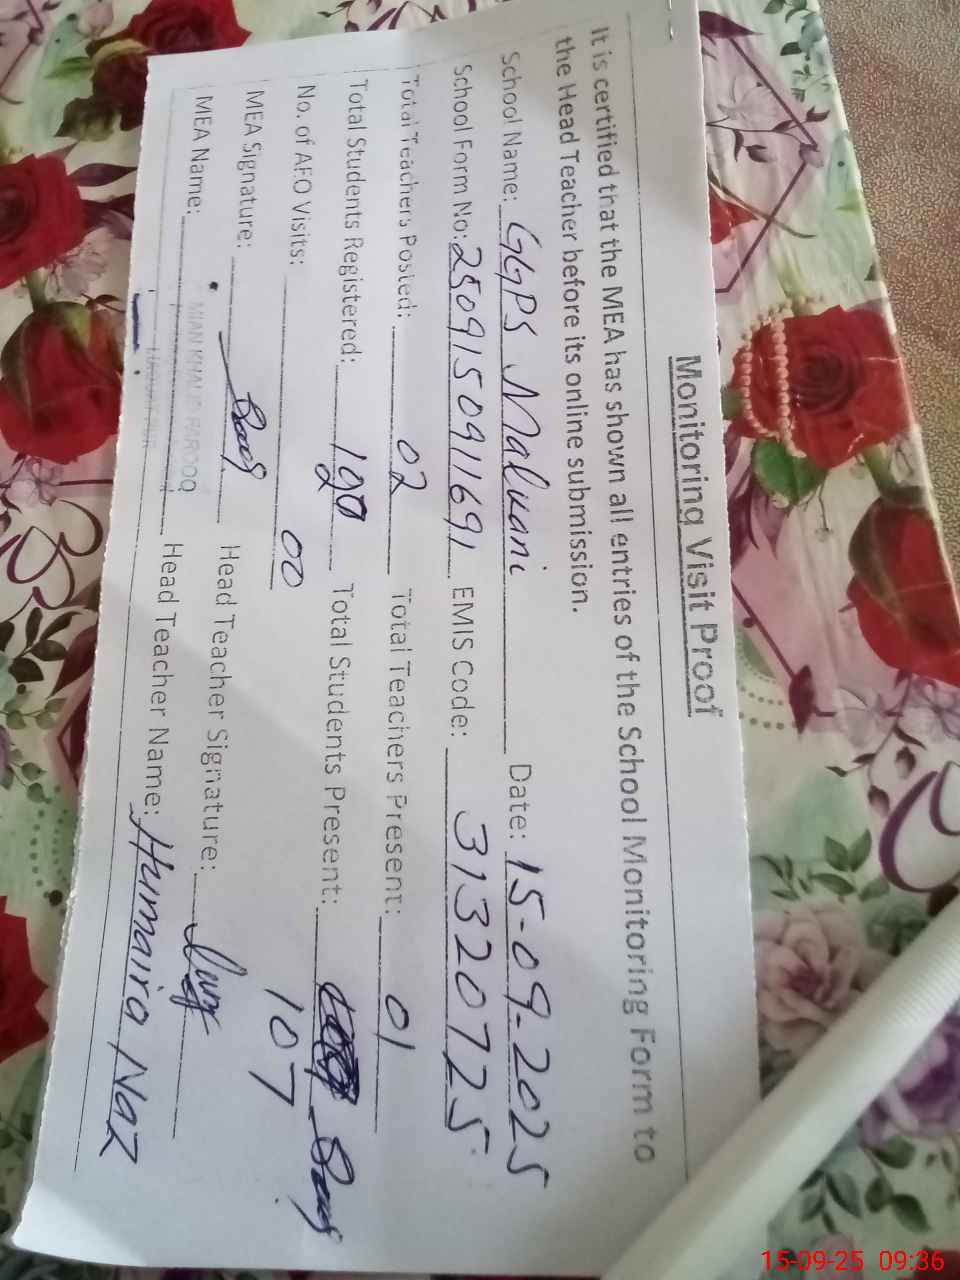 Monitoring Visit Proof
It is certified that the MEA has shown all entries of the School Monitoring Form to
the Head Teacher before its online submission.
School Name: GGPS Malvani Date: 15-09-2025
School Form No: 2509150911691 EMIS Code: 31320725
Total Teachers Posted: 02 Total Teachers Present: 01
Total Students Registered: Total Students Present: 107
No. of AEO Visits: 00
MEA Signature: Head Teacher Signature:
MEA Name: MIAN KHALID FAROOQ Head Teacher Name: Humaira Naz
15-09-25 09:36